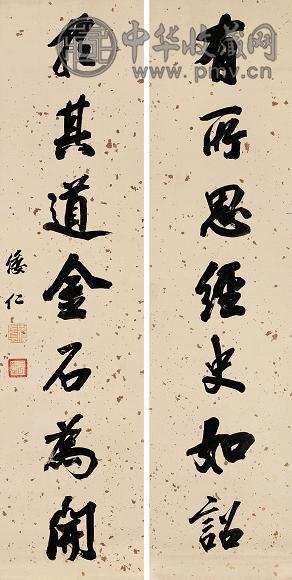 中华收藏网
www.pmv.cn
有所思經史如詔
其道金石為開
倭仁